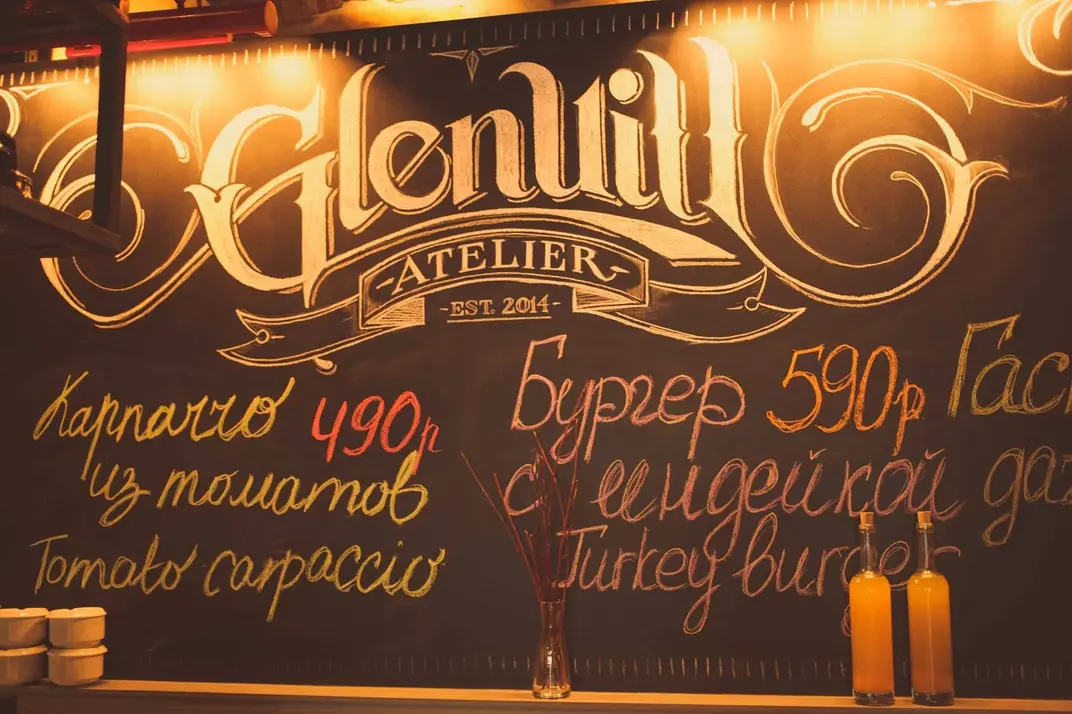 Glenuill
ATELIER
-EST. 2014-
Карпаччо 490р
из томатов
Tomato carpaccio
Бургер 590р
с индейкой
Turkey burger